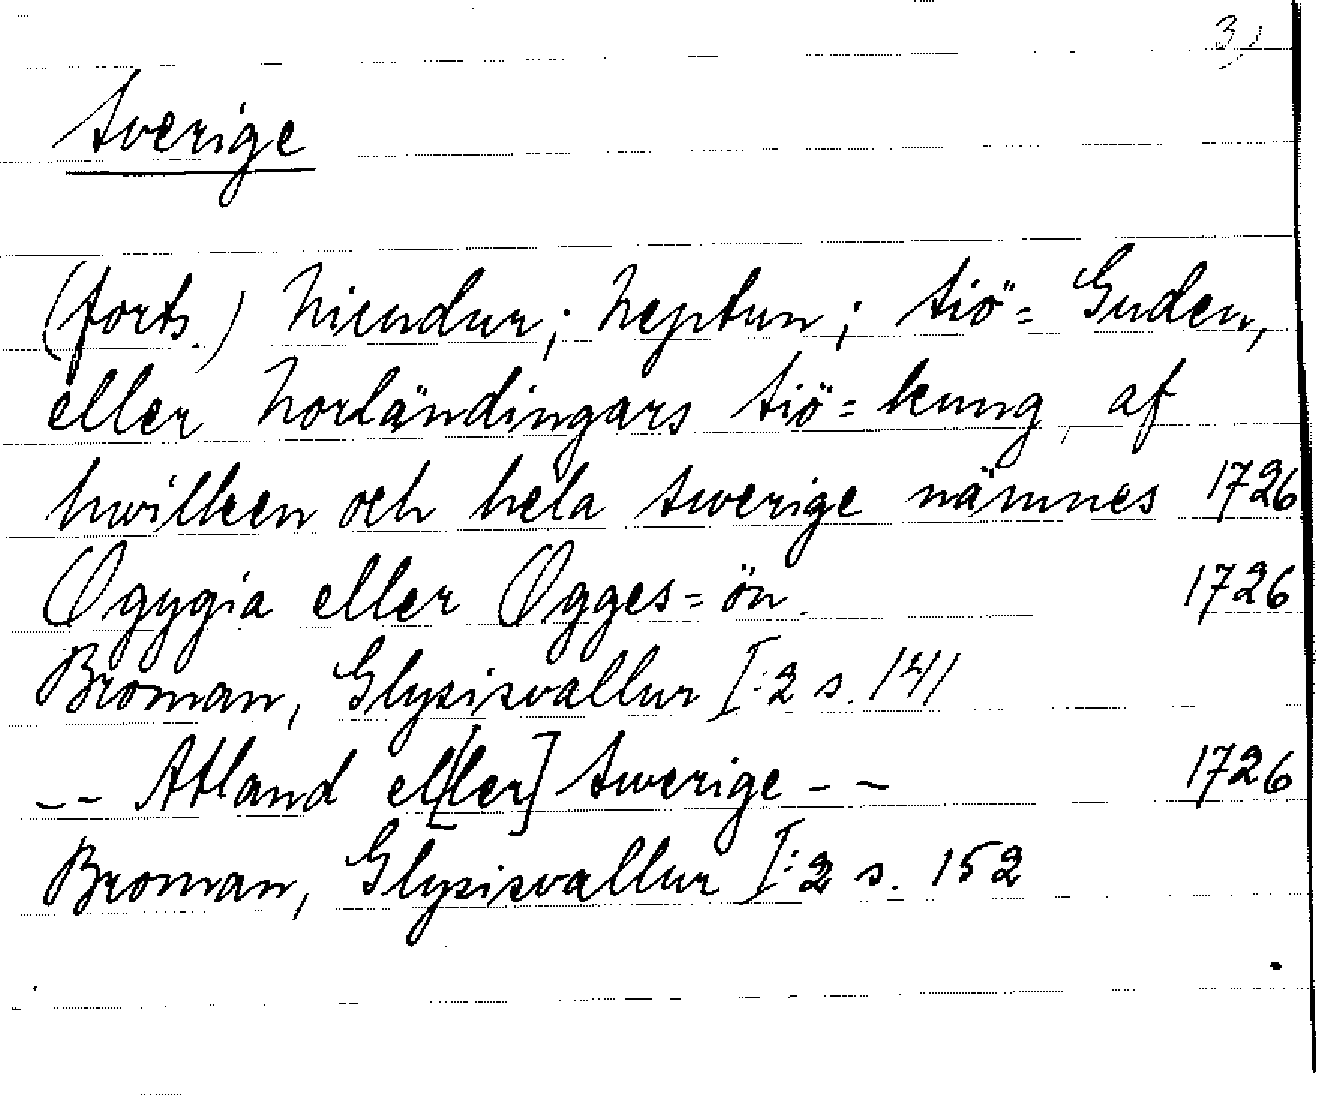 3)
Sverige
(forts.) Niendur; Neptun; Siö=Guden,
eller Norländingars Siö=kung, af
hwilken och hela Swerige nämnes 1726
Ogygia eller Ogges=ön. 1726
Broman, Glysisvallur I:2 s. 141
-- Atland el[ler] Swerige -- 1726
Broman, Glysisvallur I:2 s. 152